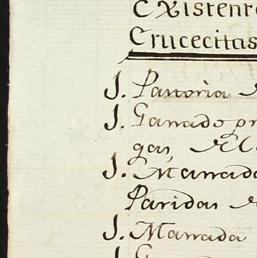 Existent
Crucecitas
J. Pastoria
J. Ganado pr
gas,
J. Manada
Paridas
J. Manada
J. G